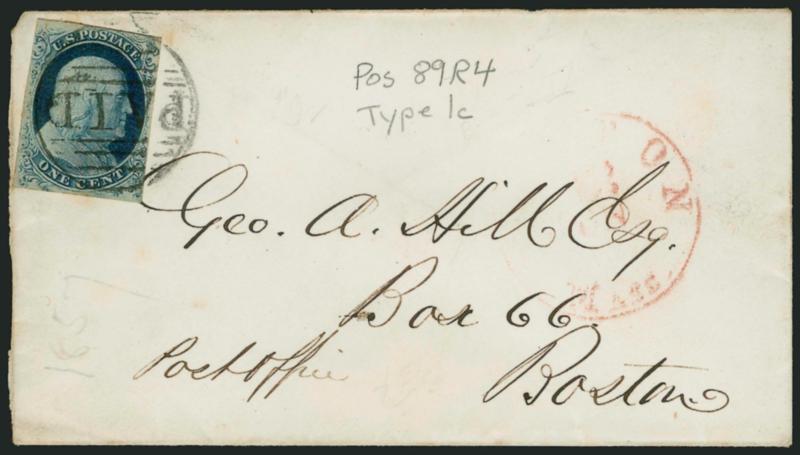 U.S. POSTAGE
ONE CENT
Pos 89R4
Type 1c
Geo. A. Hill Esq.
Box 66.
Post Office
Boston
ON
MASS
1857